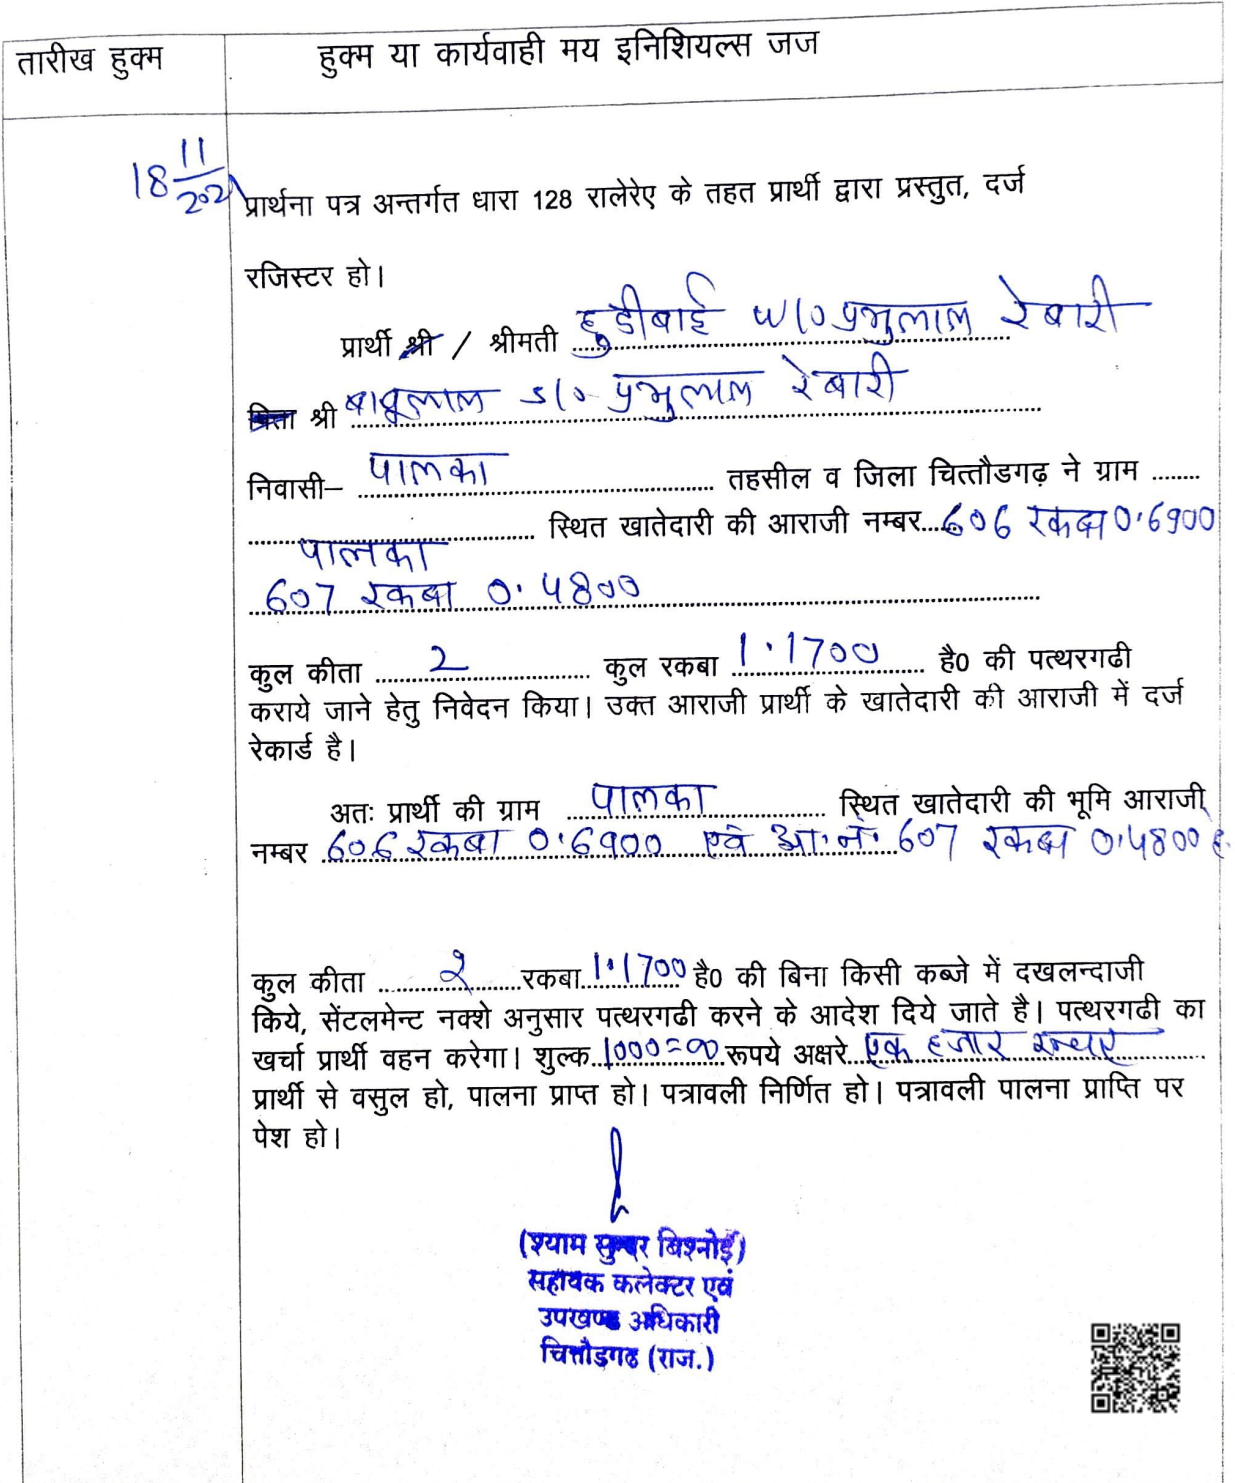 तारीख हुक्म
हुक्म या कार्यवाही मय इनिशियल्स जज
18 11/2021
प्रार्थना पत्र अन्तर्गत धारा 128 रालेरेए के तहत प्रार्थी द्वारा प्रस्तुत, दर्ज
रजिस्टर हो।
प्रार्थी श्री / श्रीमती हुडीबाई W/O प्रभुलाल रेबारी
पिता श्री बाबूलाल S/o प्रभुलाल रेबारी
निवासी– पालका तहसील व जिला चित्तौडगढ़ ने ग्राम ........
पालका स्थित खातेदारी की आराजी नम्बर 606 रकबा 0.6900
607 रकबा 0.4800
कुल कीता 2 कुल रकबा 1.1700 है0 की पत्थरगढी
कराये जाने हेतु निवेदन किया। उक्त आराजी प्रार्थी के खातेदारी की आराजी में दर्ज
रेकार्ड है।
अतः प्रार्थी की ग्राम पालका स्थित खातेदारी की भूमि आराजी
नम्बर 606 रकबा 0.6900 एवं आ.नं. 607 रकबा 0.4800 है.
कुल कीता 2 रकबा 1.1700 है0 की बिना किसी कब्जे में दखलन्दाजी
किये, सेंटलमेन्ट नक्शे अनुसार पत्थरगढी करने के आदेश दिये जाते है। पत्थरगढी का
खर्चा प्रार्थी वहन करेगा। शुल्क 1000=00 रूपये अक्षरे एक हजार रूपए
प्रार्थी से वसुल हो, पालना प्राप्त हो। पत्रावली निर्णित हो। पत्रावली पालना प्राप्ति पर
पेश हो।
(श्याम सुन्दर बिश्नोई)
सहायक कलेक्टर एवं
उपखण्ड अधिकारी
चित्तौड़गढ (राज.)